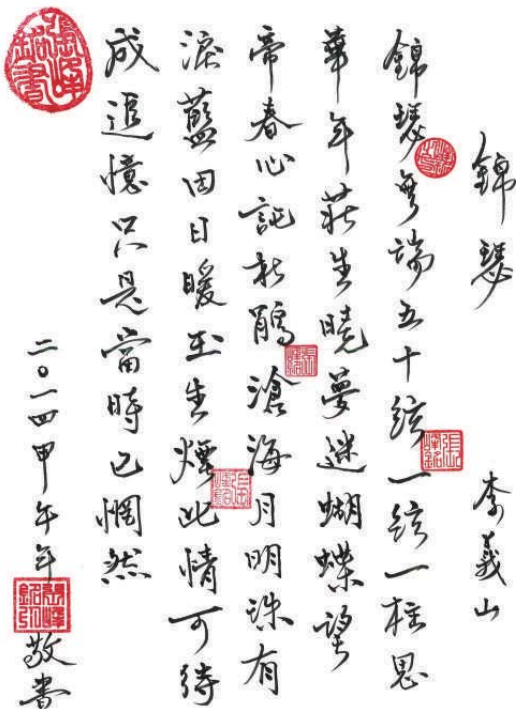 錦瑟 李義山
錦瑟無端五十絃一絃一柱思
華年莊生曉夢迷蝴蝶望
帝春心託杜鵑滄海月明珠有
淚藍田日暖玉生煙此情可待
成追憶只是當時已惘然
二〇一四甲午年 敬書